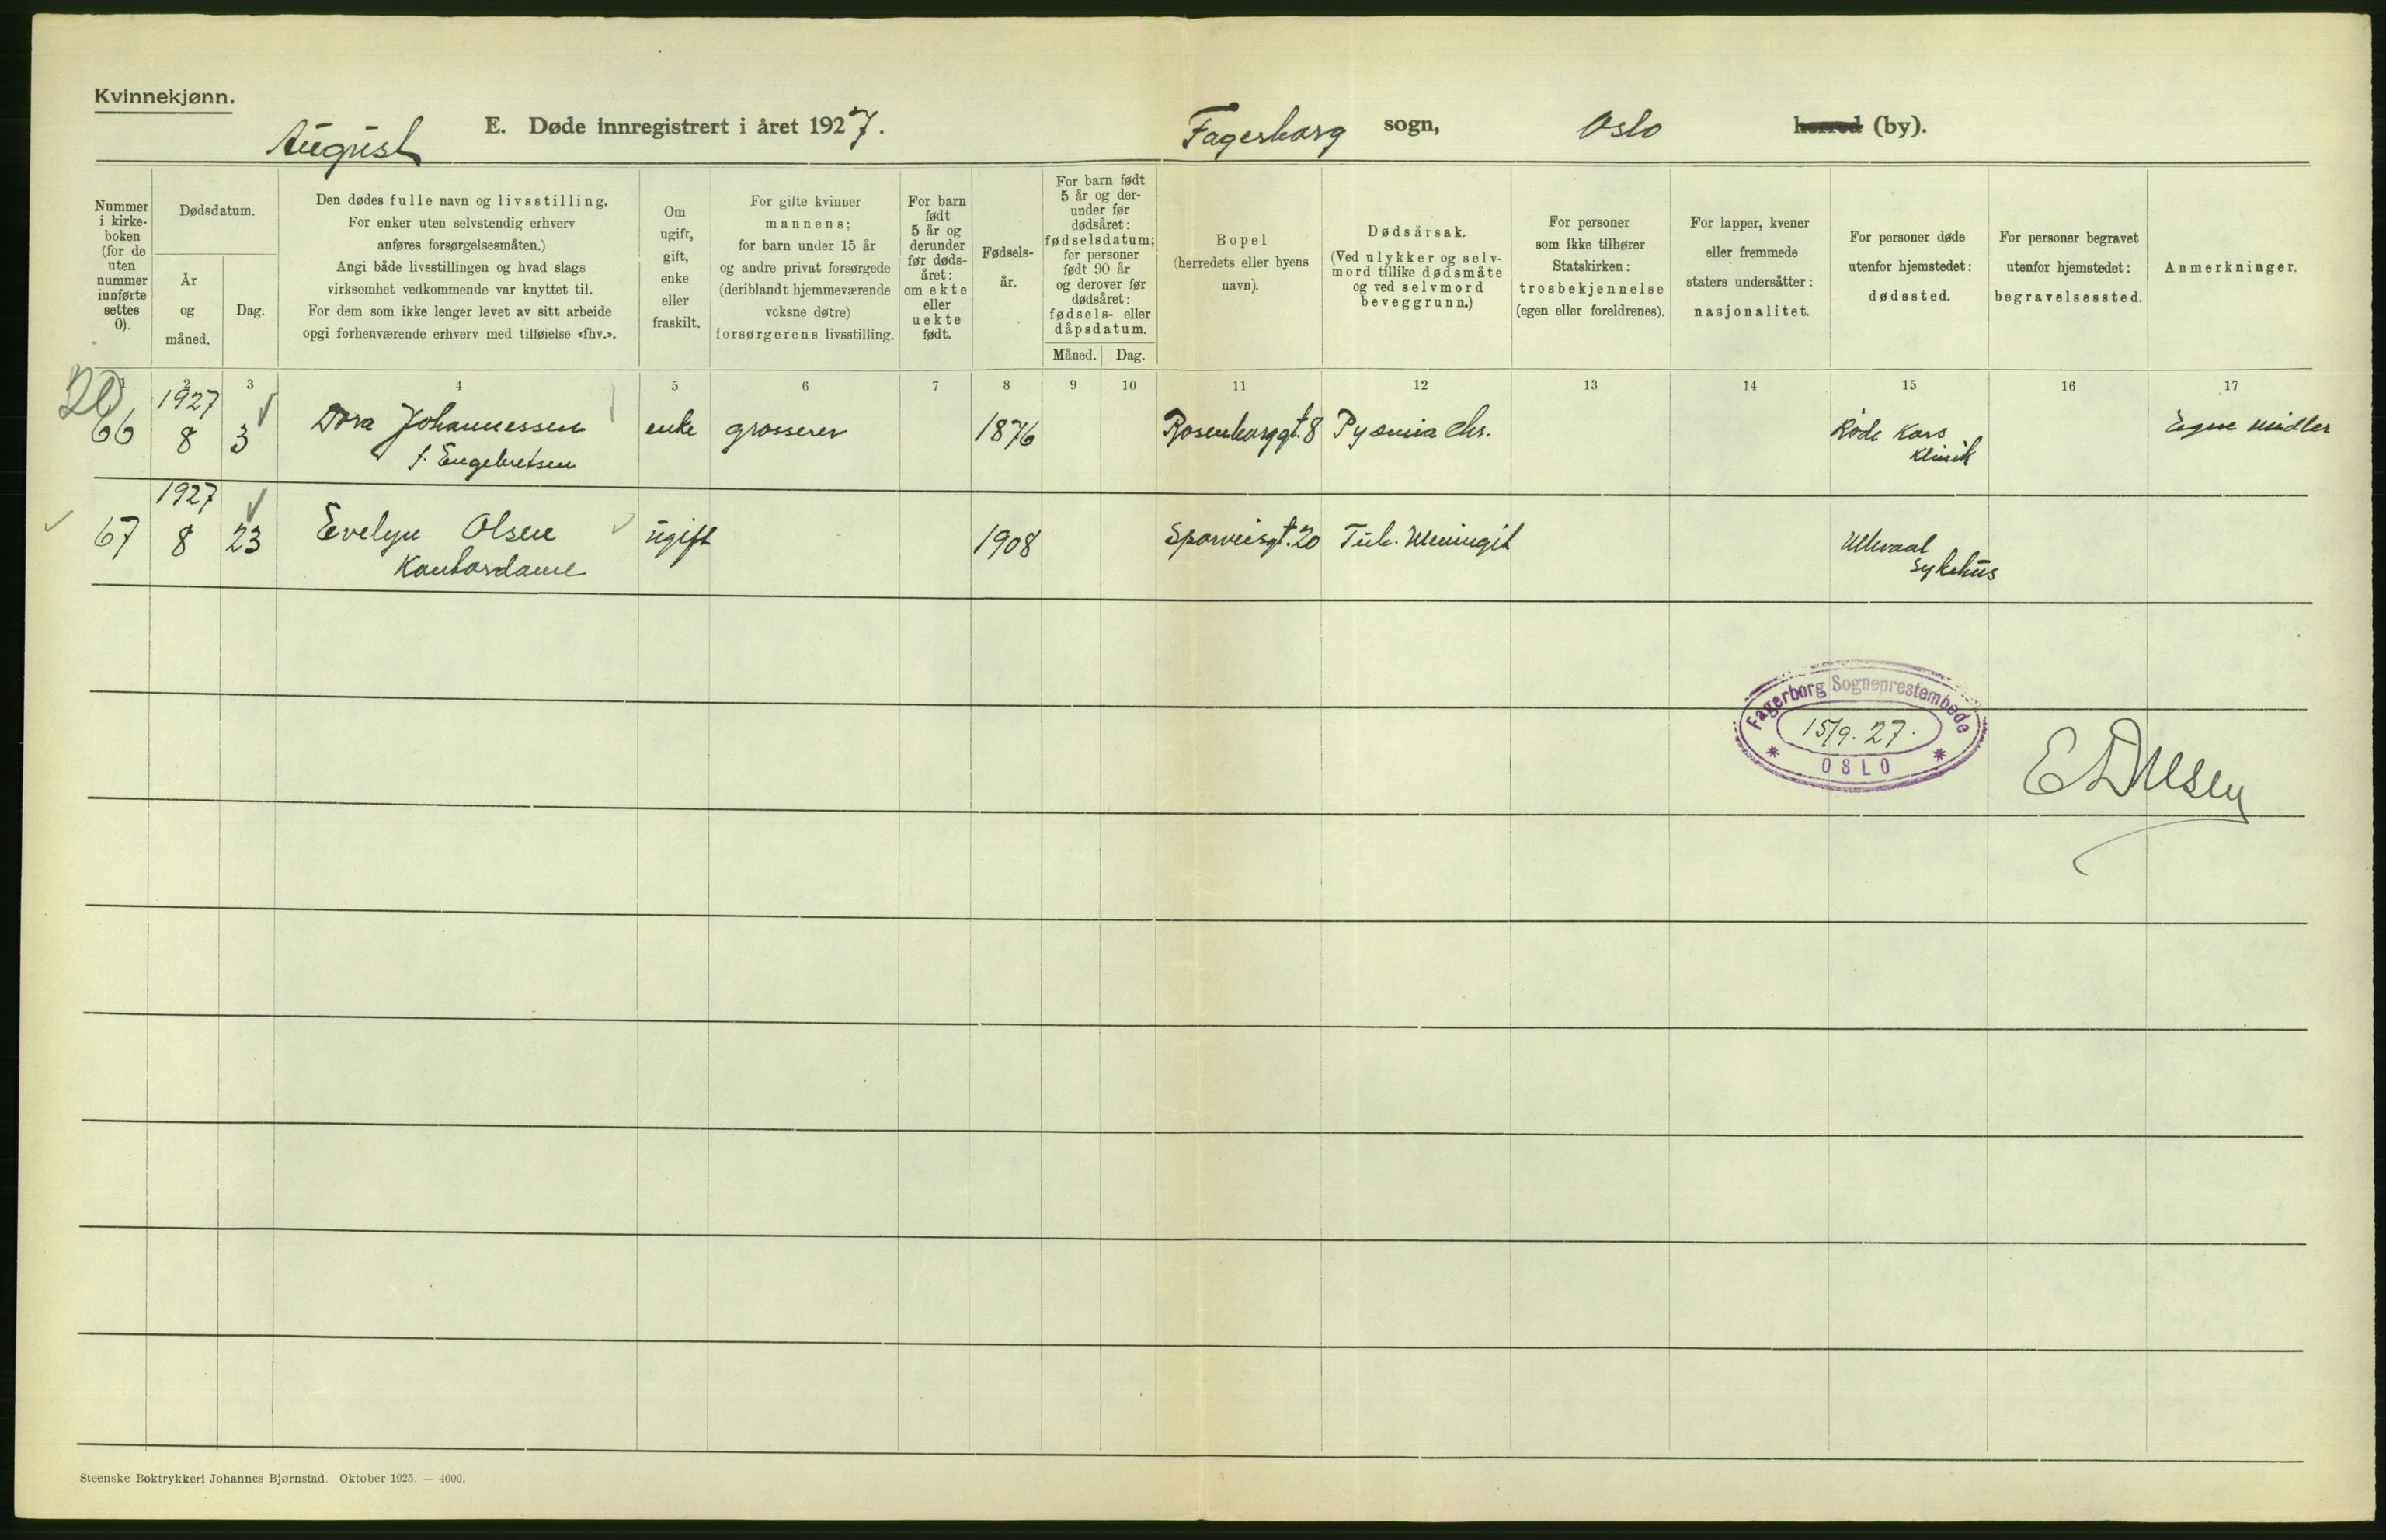 Kvinnekjønn.
August E. Døde innregistrert i året 1927. Fagerborg sogn, Oslo herred (by).
Nummer i kirke-boken (for de uten nummer innførte settes 0).
Dødsdatum.
År og måned.
Dag.
Den dødes fulle navn og livsstilling.
For enker uten selvstendig erhverv
anføres forsørgelsesmåten.)
Angi både livsstillingen og hvad slags
virksomhet vedkommende var knyttet til.
For dem som ikke lenger levet av sitt arbeide
opgi forhenværende erhverv med tilføielse «fhv.».
Om
ugift,
gift,
enke
eller
fraskilt.
For gifte kvinner
mannens;
for barn under 15 år
og andre privat forsørgede
(deriblandt hjemmeværende
voksne døtre)
forsørgerens livsstilling.
For barn
født
5 år og
derunder
før døds-
året:
om ekte
eller
uekte
født.
Fødsels-
år.
For barn født
5 år og der-
under før
dødsåret:
fødselsdatum;
for personer
født 90 år
og derover før
dødsåret:
fødsels- eller
dåpsdatum.
Måned. Dag.
Bopel
(herredets eller byens
navn).
Dødsårsak.
(Ved ulykker og selv-
mord tillike dødsmåte
og ved selvmord
beveggrunn.)
For personer
som ikke tilhører
Statskirken:
trosbekjennelse
(egen eller foreldrenes).
For lapper, kvener
eller fremmede
staters undersåtter:
nasjonalitet.
For personer døde
utenfor hjemstedet:
dødssted.
For personer begravet
utenfor hjemstedet:
begravelsessted.
Anmerkninger.
1 2 3 4 5 6 7 8 9 10 11 12 13 14 15 16 17
20
1927
66 8 3 Dora Johannessen enke grosserer 1876 Rosenborggt. 8 Pyæmia chr. Røde Kors Egne midler
f. Engebretsen Klinik
1927
67 8 23 Evelyn Olsen ugift 1908 Sporveisgt. 20 Tub. Meningit Ullevaal
Kontordame Sykehus
Fagerborg Sogneprestembede
15/9. 27.
* OSLO *
Steenske Boktrykkeri Johannes Bjørnstad. Oktober 1925. — 4000.